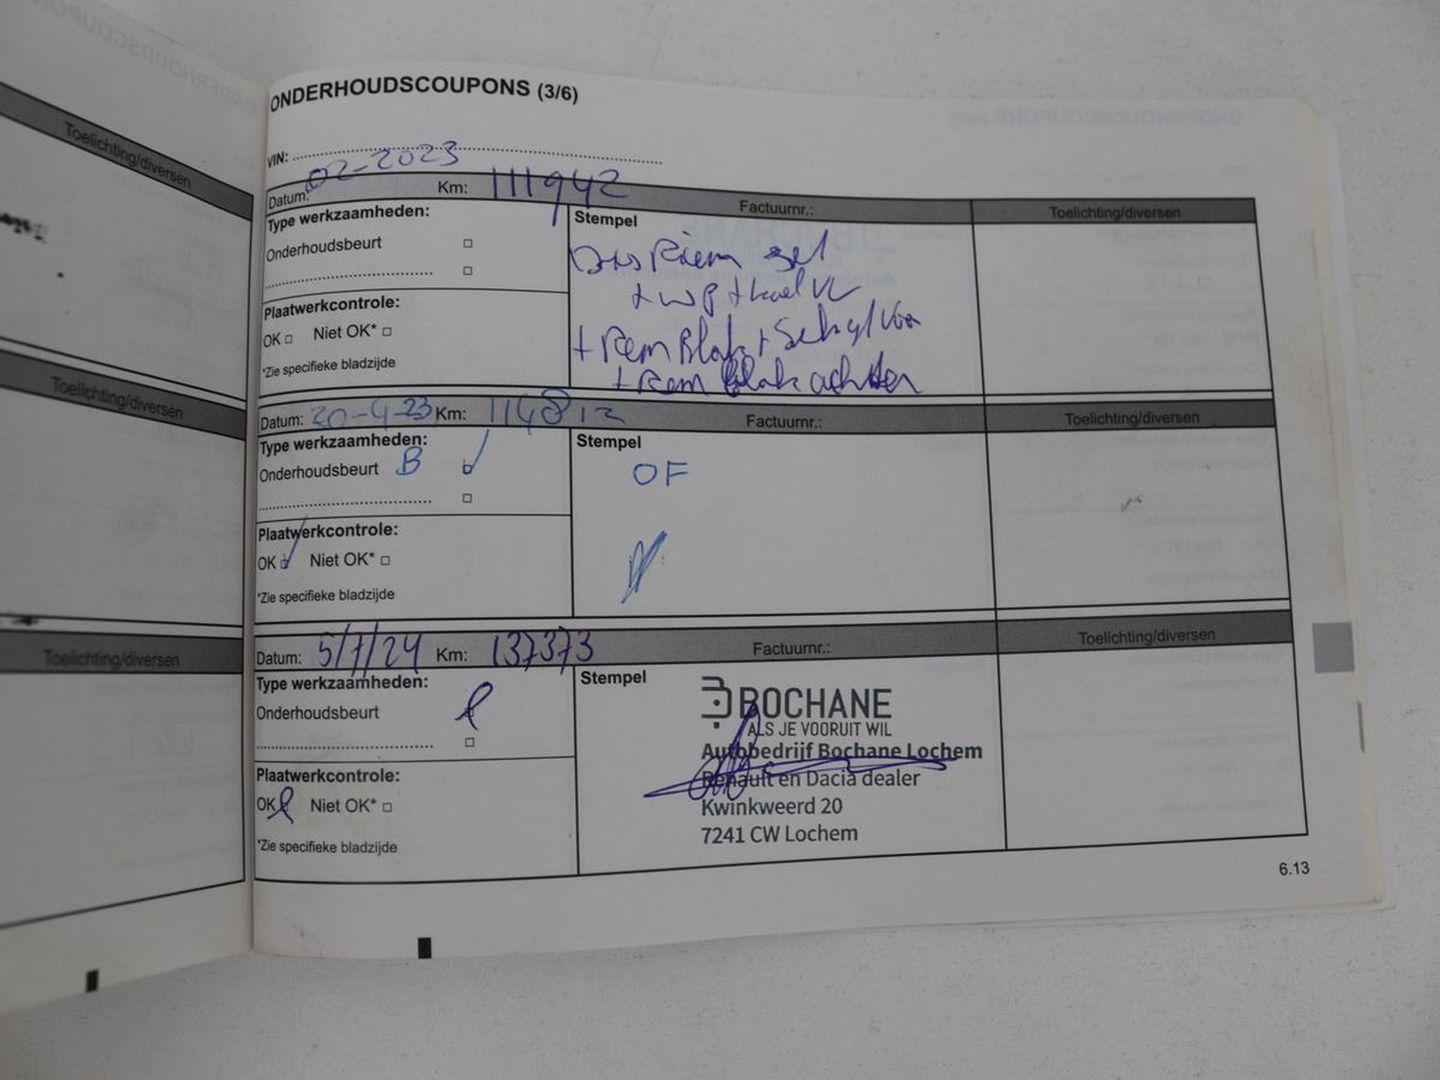 Toelichting/diversen
Toelichting/diversen
Toelichting/diversen
ONDERHOUDSCOUPONS (3/6)
VIN:
Datum: 02-2023 Km: 111942 Factuurnr.: Toelichting/diversen
Type werkzaamheden:
Onderhoudsbeurt
Plaatwerkcontrole:
OK Niet OK*
*Zie specifieke bladzijde
Stempel
Riem
+ WP +
+ Rem Blok +
+ Rem Blok achter
Datum: 20-4-23 Km: 114812 Factuurnr.: Toelichting/diversen
Type werkzaamheden:
Onderhoudsbeurt B
Plaatwerkcontrole:
OK Niet OK*
*Zie specifieke bladzijde
Stempel
OF
Datum: 5/7/24 Km: 137373 Factuurnr.: Toelichting/diversen
Type werkzaamheden:
Onderhoudsbeurt
Plaatwerkcontrole:
OK Niet OK*
*Zie specifieke bladzijde
Stempel
BOCHANE
ALS JE VOORUIT WIL
Autobedrijf Bochane Lochem
Renault en Dacia dealer
Kwinkweerd 20
7241 CW Lochem
6.13